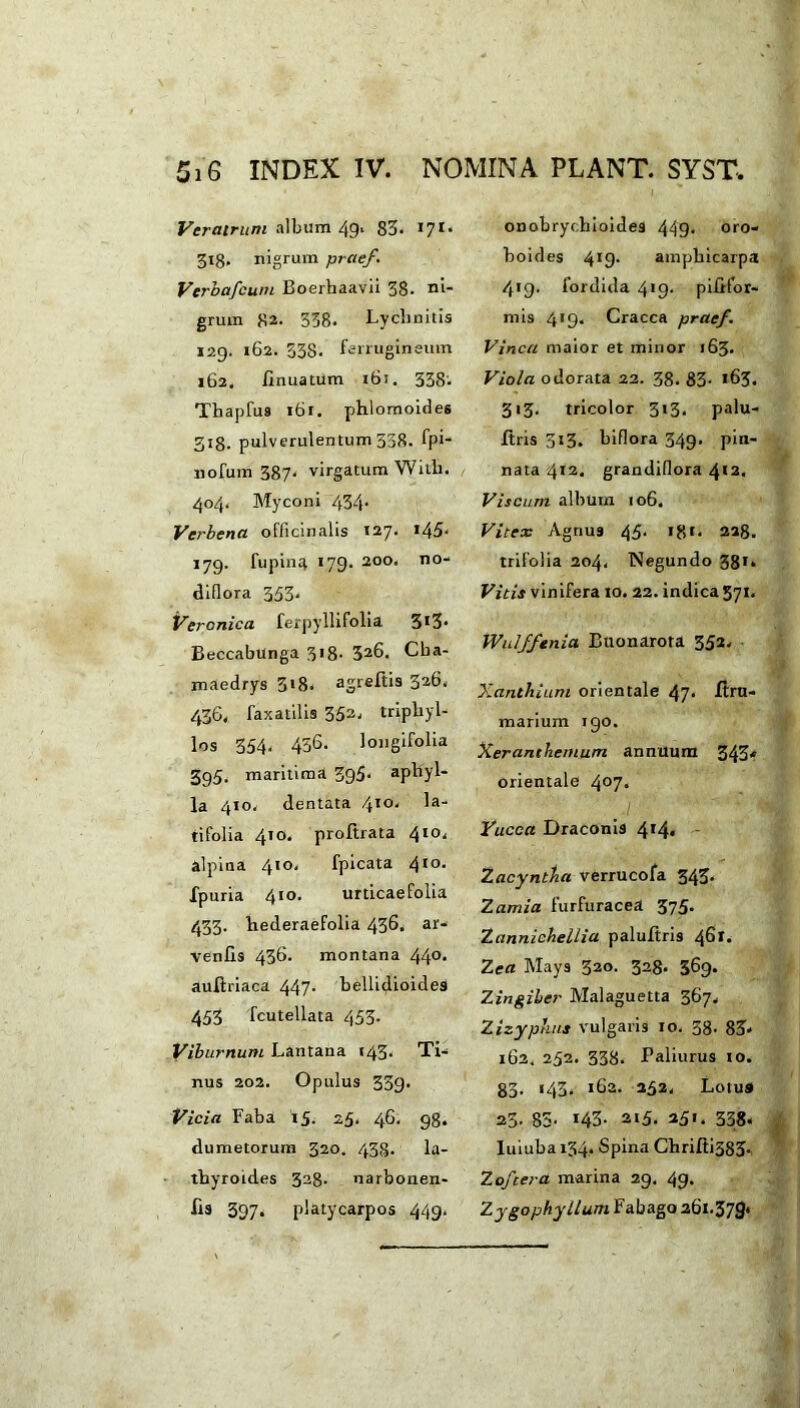 516 INDEX IV. NOMINA PLANT. SYST.
Veratrum album 49. 83. 171.
318. nigrum praef.
Verbaſcum Boerhaavii 38. ni-
grum 82. 338. Lychnitis
129. 162. 338. ferrugineum
162. ſinuatum 161. 338.
Thapſus 161. phlomoides
318. pulverulentum 338. ſpi-
noſum 387. virgatum With.
404. Myconi 434.
Verbena officinalis 127. 145.
179. ſupina 179. 200. no-
diflora 353.
Veronica ſerpyllifolia 313.
Beccabunga 318. 326. Cha-
maedrys 318. agreſtis 326.
436. ſaxatilis 352. triphyl-
los 354. 436. longifolia
395. maritima 395. aphyl-
la 410. dentata 410. la-
tifolia 410. proſtrata 410.
alpina 410. ſpicata 410.
ſpuria 410. urticaefolia
433. hederaefolia 436. ar-
venſis 436. montana 440.
auſtriaca 447. bellidioides
453 ſcutellata 453.
Viburnum Lantana 143. Ti-
nus 202. Opulus 339.
Vicia Faba 15. 25. 46. 98.
dumetorum 320. 438. la-
thyroides 328. narbonen-
ſis 397. platycarpos 449.
onobrychioides 449. oro-
boides 419. amphicarpa
419. ſordida 419. piſifor-
mis 419. Cracca praef.
Vinca maior et minor 163.
Viola odorata 22. 38. 83. 163.
313. tricolor 313. palu-
ſtris 313. biflora 349. pin-
nata 412. grandiflora 412.
Viscum album 106.
Vitex Agnus 45. 181. 228.
trifolia 204. Negundo 381.
Vitis vinifera 10. 22. indica 371.
Wulffenia Buonarota 352.
Xanthium orientale 47. ſtru-
marium 190.
Xeranthemum annuum 343.
orientale 407.
Yucca Draconis 414.
Zacyntha verrucoſa 343.
Zamia furfuracea 375.
Zannichellia paluſtris 461.
Zea Mays 320. 328. 369.
Zingiber Malaguetta 367.
Zizyphus vulgaris 10. 38. 83.
162. 252. 338. Paliurus 10.
83. 143. 162. 252. Lotus
23. 83. 143. 215. 251. 338.
Iuiuba 134. Spina Chriſti 383.
Zoſtera marina 29. 49.
Zygophyllum Fabago 261. 379.